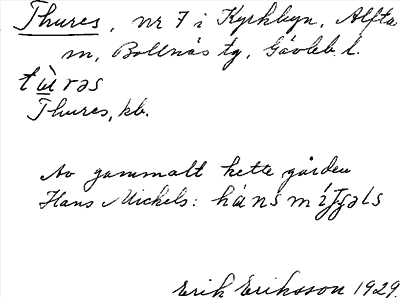 Thures, nr 7 i Kyrkbyn, Alfta
m, Bollnäs tg, Gävleb. l.
tùrəs
Thures, kb.
Av gammalt hette gården
Hans Mickels: háns
Erik Eriksson 1929.